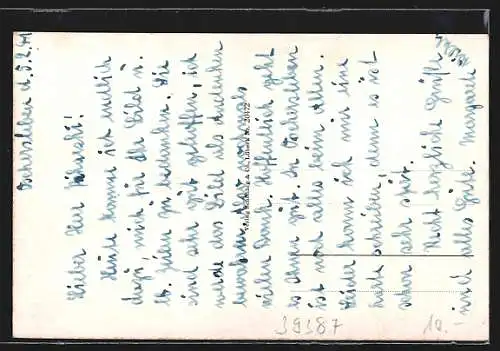 Oschersleben d. 5.2.41
Lieber Herr Pölowski!
Heute komme ich endlich
dazu mich für die Bilder u.
Zeilen zu bedanken. Sie
sind sehr gut getroffen, ich
werde das Bild als Andenken
bewahren. Also nochmals
vielen Dank. Hoffentlich geht
es Ihnen gut. In Oschersleben
ist noch alles beim Alten.
Leider kann ich nur eine
Karte schreiben, denn es ist
schon sehr spät.
Recht herzliche Grüße
und alles Gute. Margarete
39387
10.-